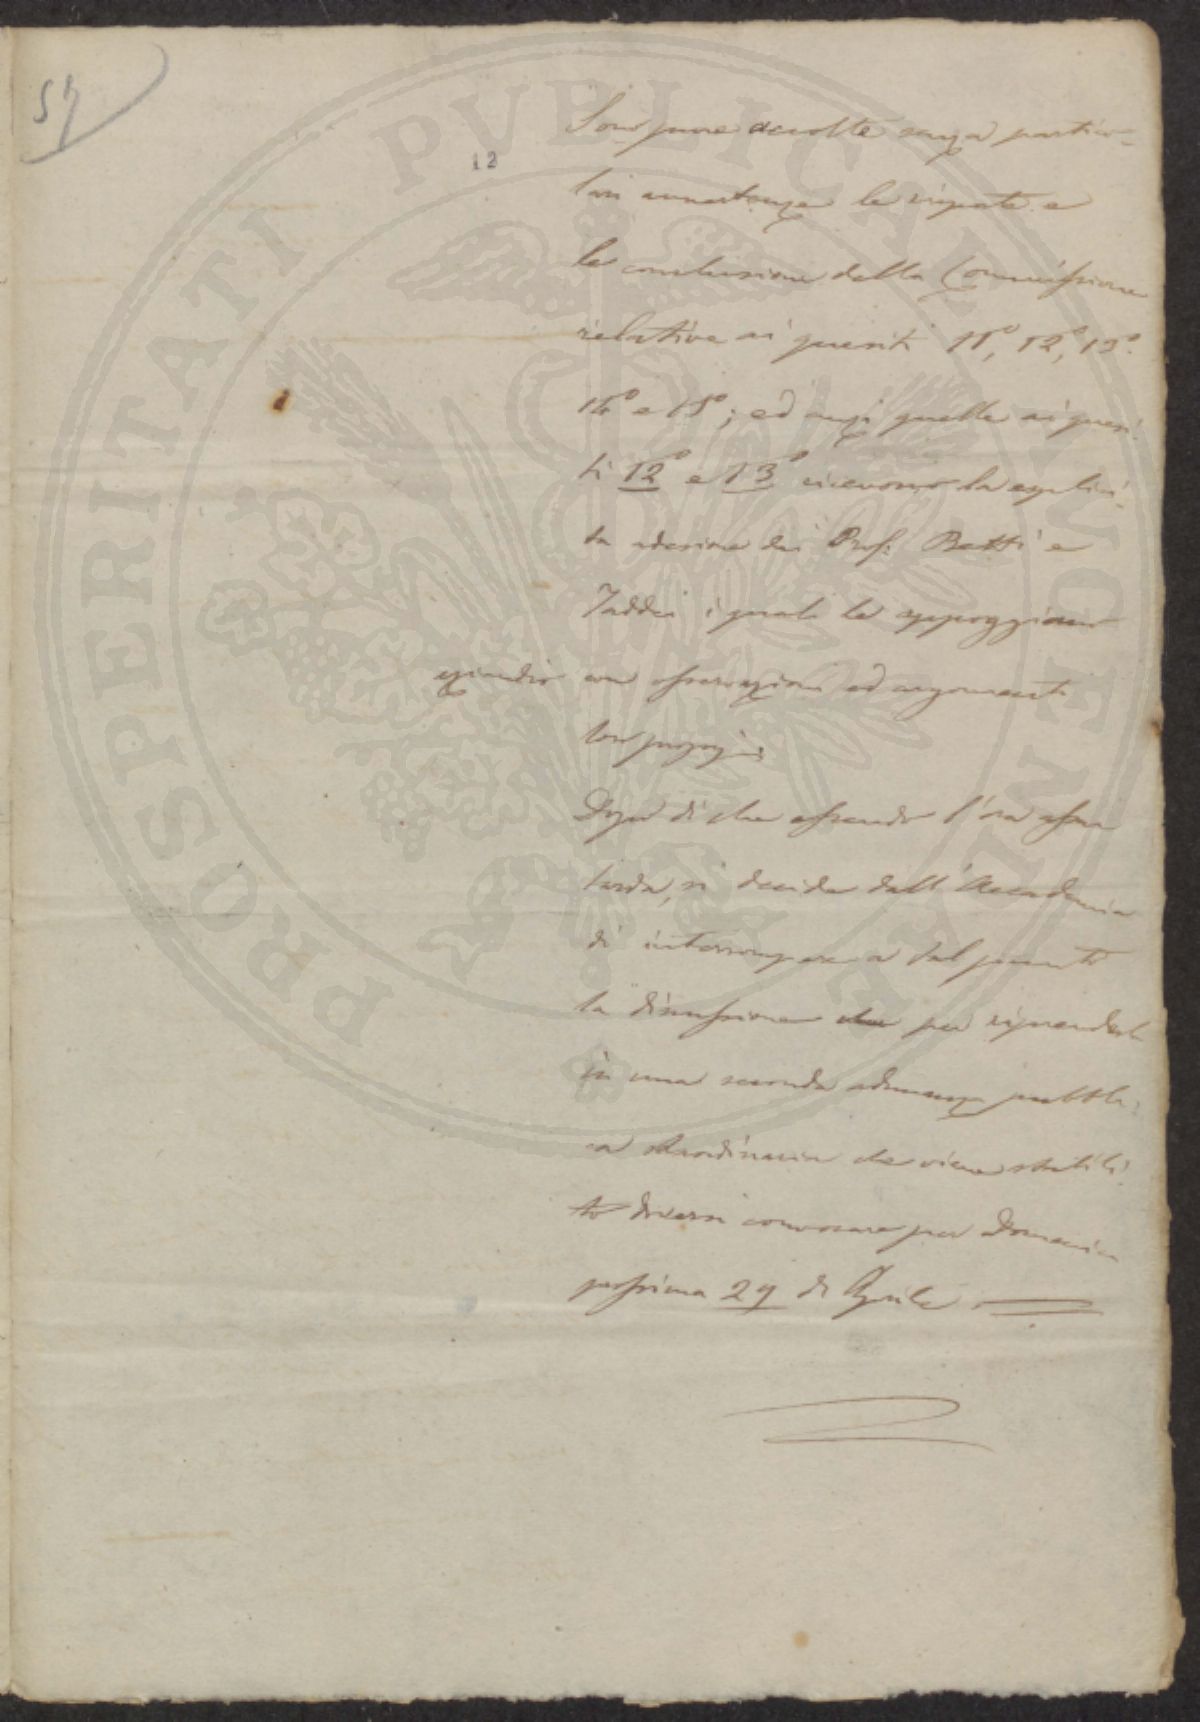 57
12
Sono pure accolte senza partico-
lari avvertenze le risposte e
le conclusione della Commissione
relative ai quesiti 11°, 12°, 13°.
14° e 15°; ed anzi quelle ai quesi-
ti 12° e 13° ricevono la esplici-
ta adesione dai Prof. Betti e
Taddei i quali le appoggiano
eziandio con osservazioni ed argomenti
loro proprj.
Dopo di che essendo l'ora assai
tarda, si decide dall'Accademia
di interrompere a tal punto
la discussione che per riprenderla
in una seconda adunanza pubbli-
ca straordinaria che viene stabili-
to doversi convocare per Domenica
prossima 29 di Aprile
PROSPERITATI PVBLICAE AVGENDAE